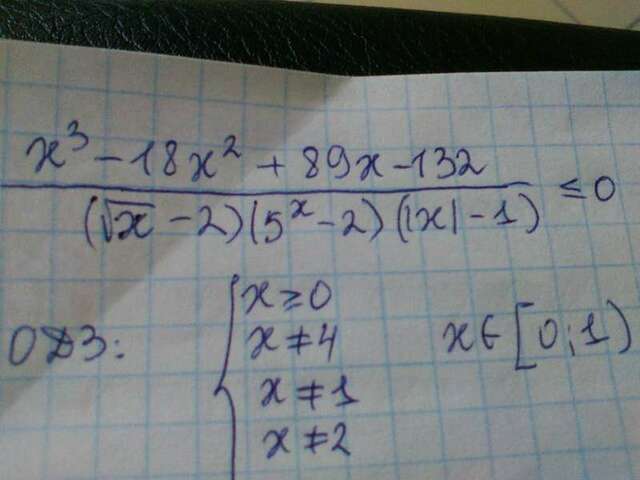 x³ - 18x² + 89x - 132
(√x - 2)(5ˣ - 2)(|x| - 1) ≤ 0
ОДЗ: x ≥ 0
x ≠ 4 x ∈ [0; 1)
x ≠ 1
x ≠ 2